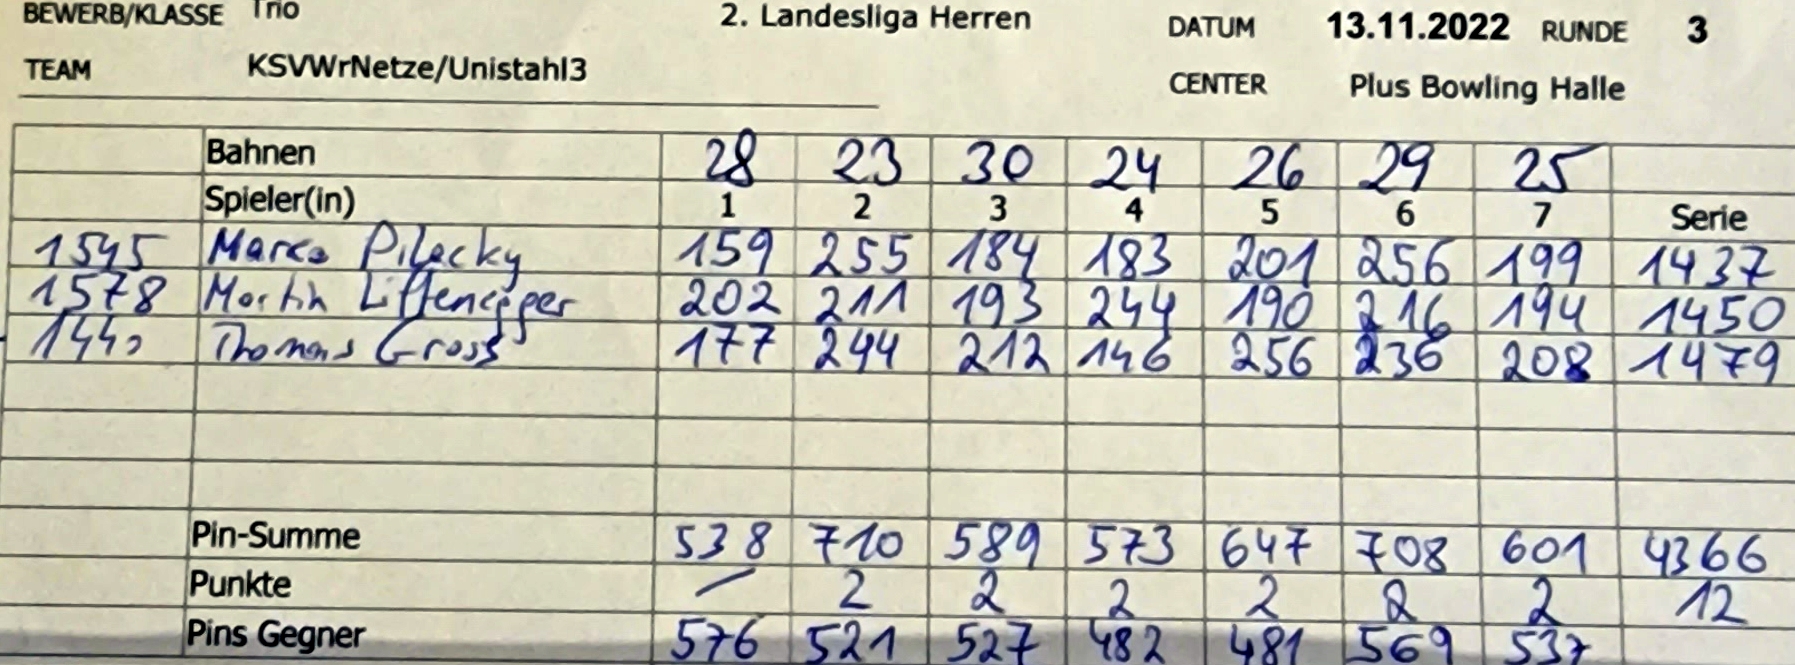 BEWERB/KLASSE Trio 2. Landesliga Herren DATUM 13.11.2022 RUNDE 3
TEAM KSVWrNetze/Unistahl3 CENTER Plus Bowling Halle
Bahnen 28 23 30 24 26 29 25
Spieler(in) 1 2 3 4 5 6 7 Serie
1545 Marco Pilecky 159 255 184 183 201 256 199 1437
1578 Martin Liffenegger 202 211 193 244 190 216 194 1450
1440 Thomas Gross 177 244 212 146 256 236 208 1479
Pin-Summe 538 710 589 573 647 708 601 4366
Punkte – 2 2 2 2 2 2 12
Pins Gegner 576 521 527 482 481 569 537